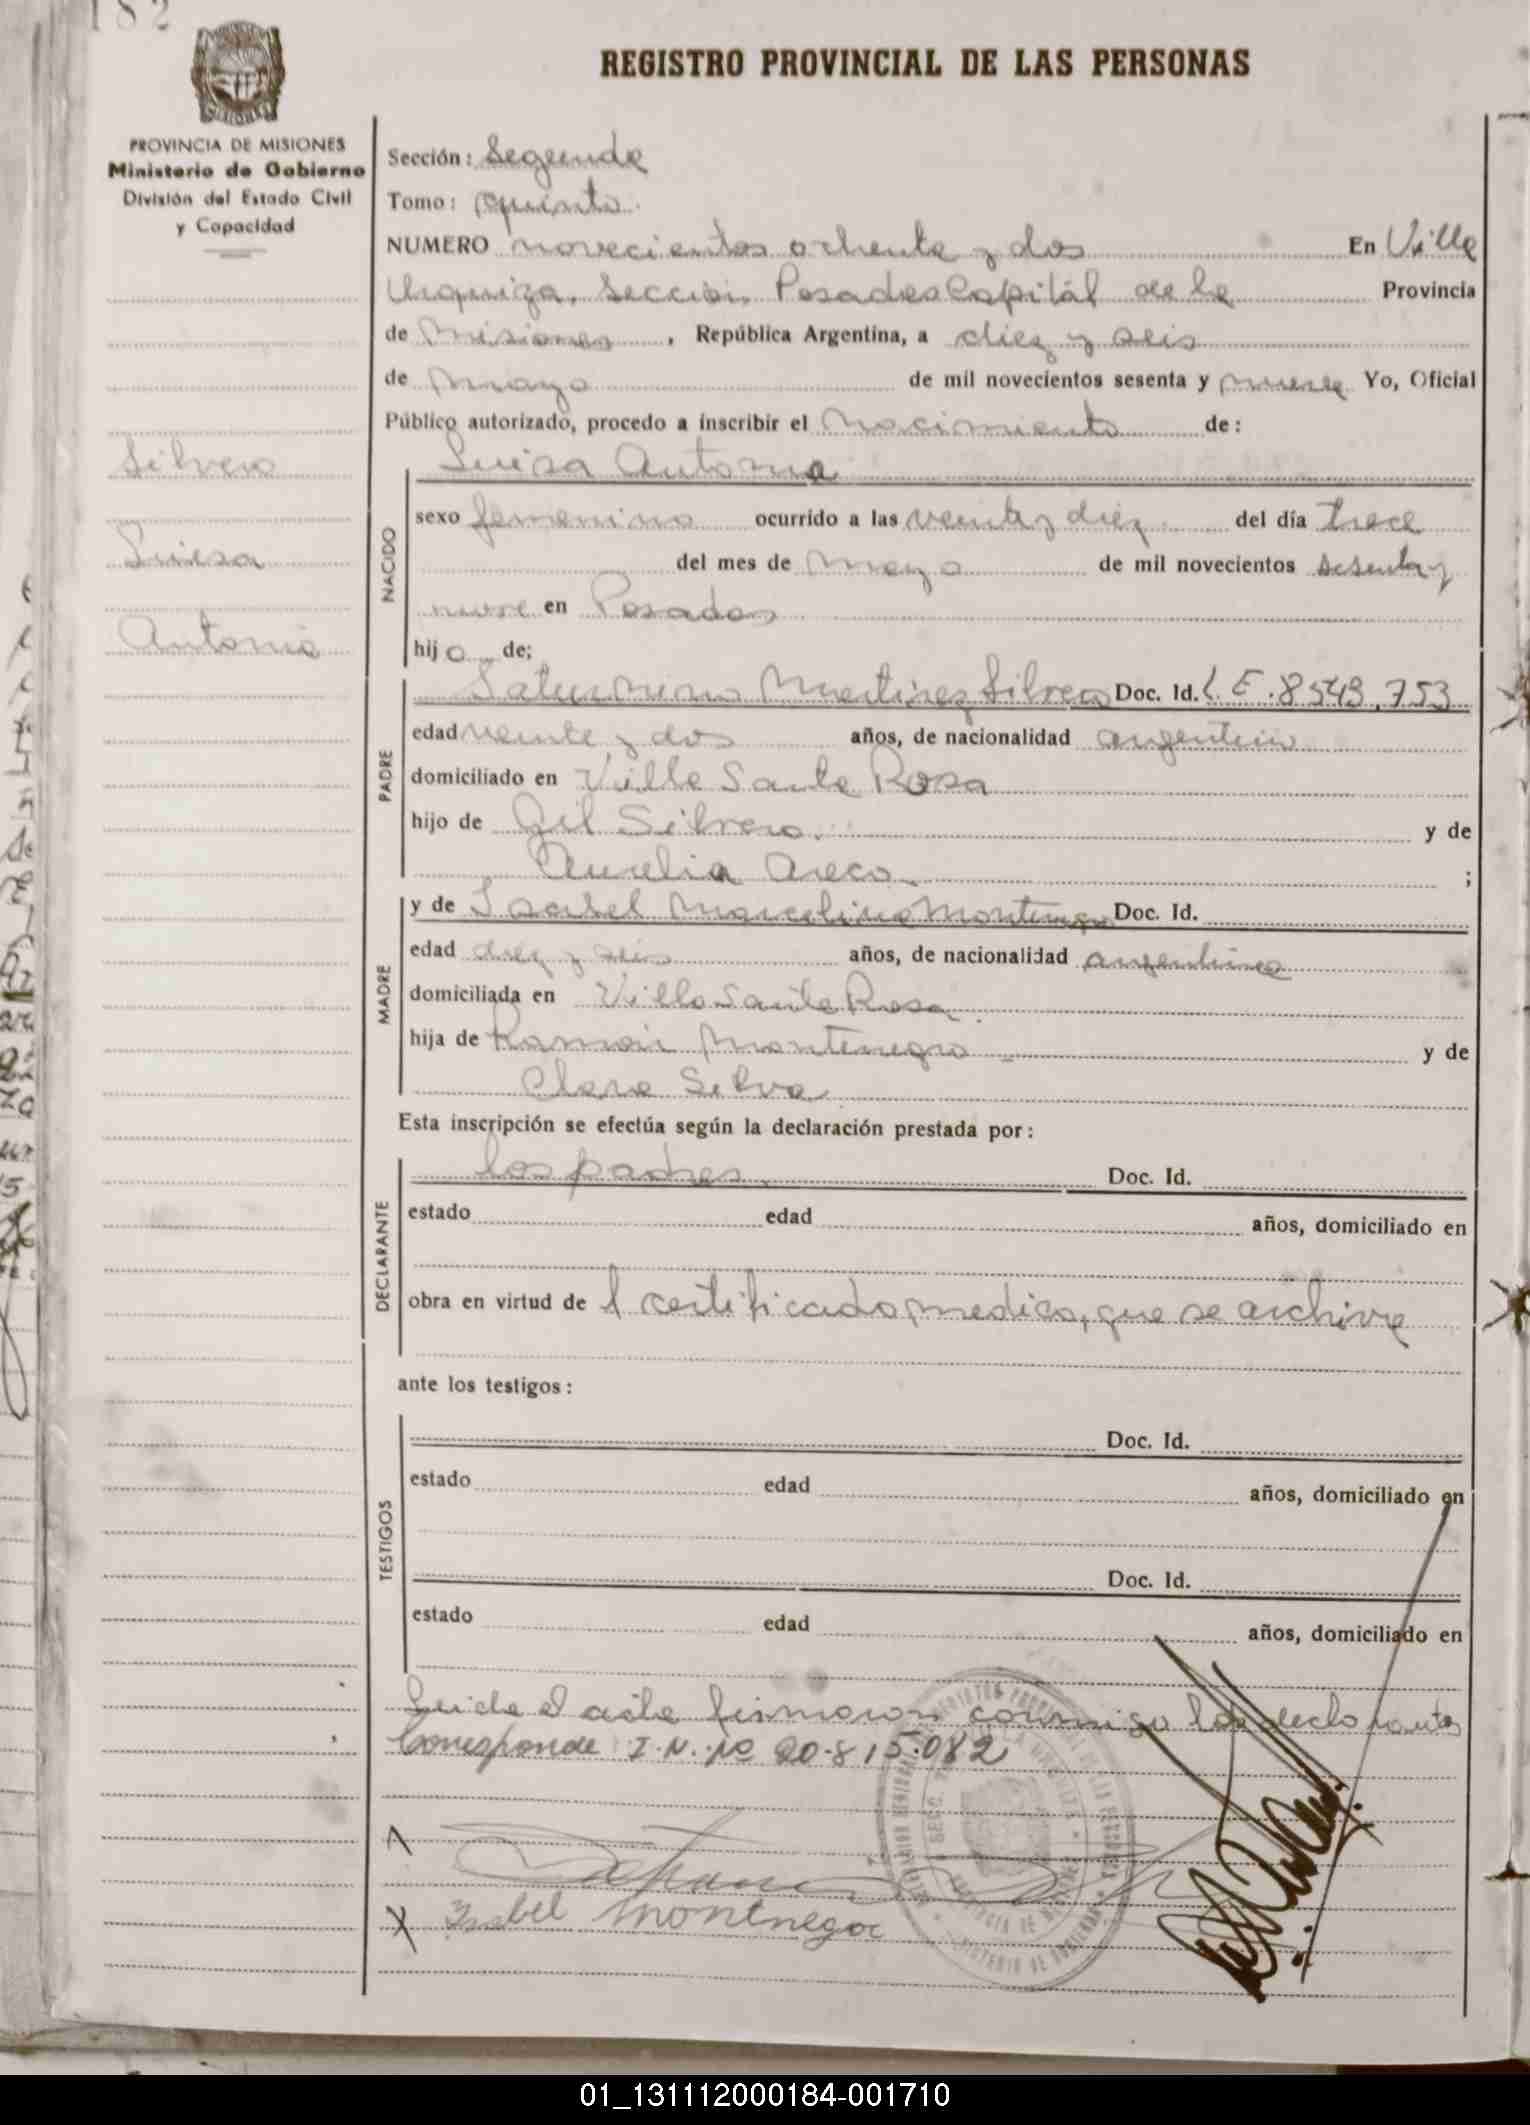 182
REGISTRO PROVINCIAL DE LAS PERSONAS
PROVINCIA DE MISIONES
Ministerio de Gobierno
División del Estado Civil
y Capacidad
Silvero
Luisa
Antonia
Sección: Segunda
Tomo: quinto
NUMERO novecientos ochenta y dos En Villa
Urquiza, Sección Posadas Capital de la Provincia
de Misiones, República Argentina, a diez y seis
de mayo de mil novecientos sesenta y nueve Yo, Oficial
Público autorizado, procedo a inscribir el Nacimiento de:
Luisa Antonia
NACIDO
sexo femenino ocurrido a las veinte y diez del día trece
del mes de mayo de mil novecientos sesenta y
nueve en Posadas
hija de;
PADRE
Saturnino Martinez Silvero Doc. Id. L.E. 8549.753
edad veinte y dos años, de nacionalidad argentino
domiciliado en Villa Santa Rosa
hijo de Gil Silvero. y de
Aurelia Areco. ;
MADRE
y de Isabel Marcelina Montenegro Doc. Id.
edad diez y seis años, de nacionalidad argentina
domiciliada en Villa Santa Rosa.
hija de Ramón Montenegro y de
Clara Silva
Esta inscripción se efectúa según la declaración prestada por:
DECLARANTE
los padres. Doc. Id.
estado edad años, domiciliado en
obra en virtud de l certificado medico, que se archiva
ante los testigos:
TESTIGOS
Doc. Id.
estado edad años, domiciliado en
Doc. Id.
estado edad años, domiciliado en
Leida el acta firmaron conmigo los declarantes
Corresponde I.N. No 20.815.082
X Isabel Montnegoc
01_131112000184-001710